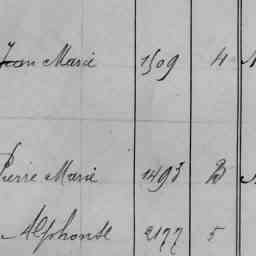 Jean Marie 1509 4
Pierre Marie 1493 B
Alphonse 2177 5